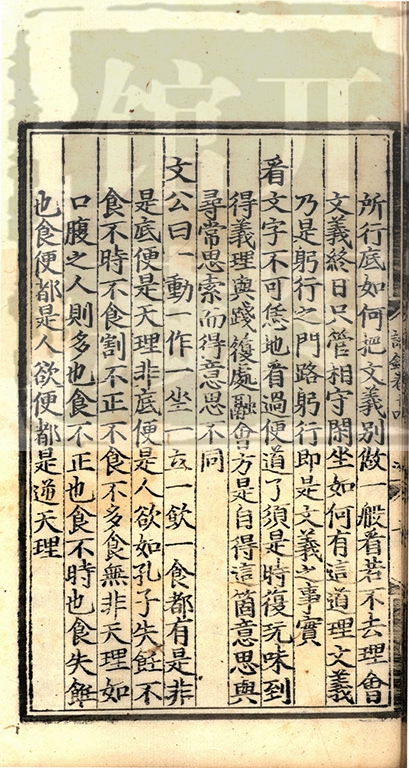 所行底如何把文義別做一般看若不去理會
文義終日只管相守閑坐如何有這道理文義
乃是躬行之門路躬行即是文義之事實
看文字不可恁地看過便道了須是時復玩味到
得義理與踐履處融會方是自得這箇意思與
尋常思索而得意思不同
文公曰一動一作一坐一立一飲一食都有是非
是底便是天理非底便是人欲如孔子失飪不
食不時不食割不正不食不多食無非天理如
口腹之人則多也食不正也食不時也食失飪
也食便都是人欲便都是逆天理